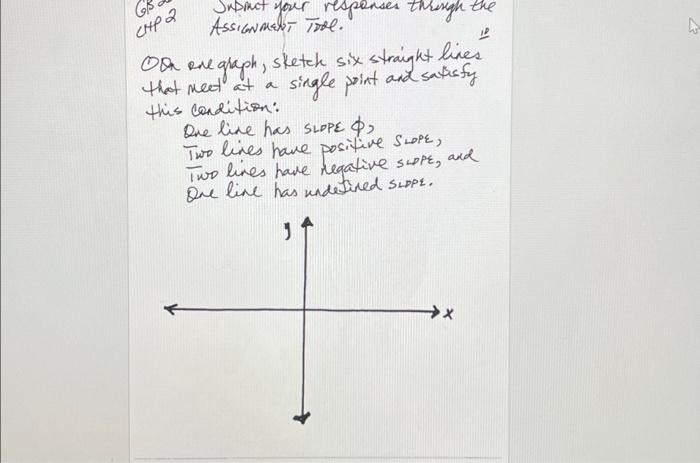 CHP 2
Submit your responses through the
ASSIGNMENT TOOL.
10
① On one graph, sketch six straight lines
that meet at a single point and satisfy
this condition:
One line has SLOPE ϕ,
Two lines have positive SLOPE,
Two lines have negative SLOPE, and
One line has undefined SLOPE.
y
x